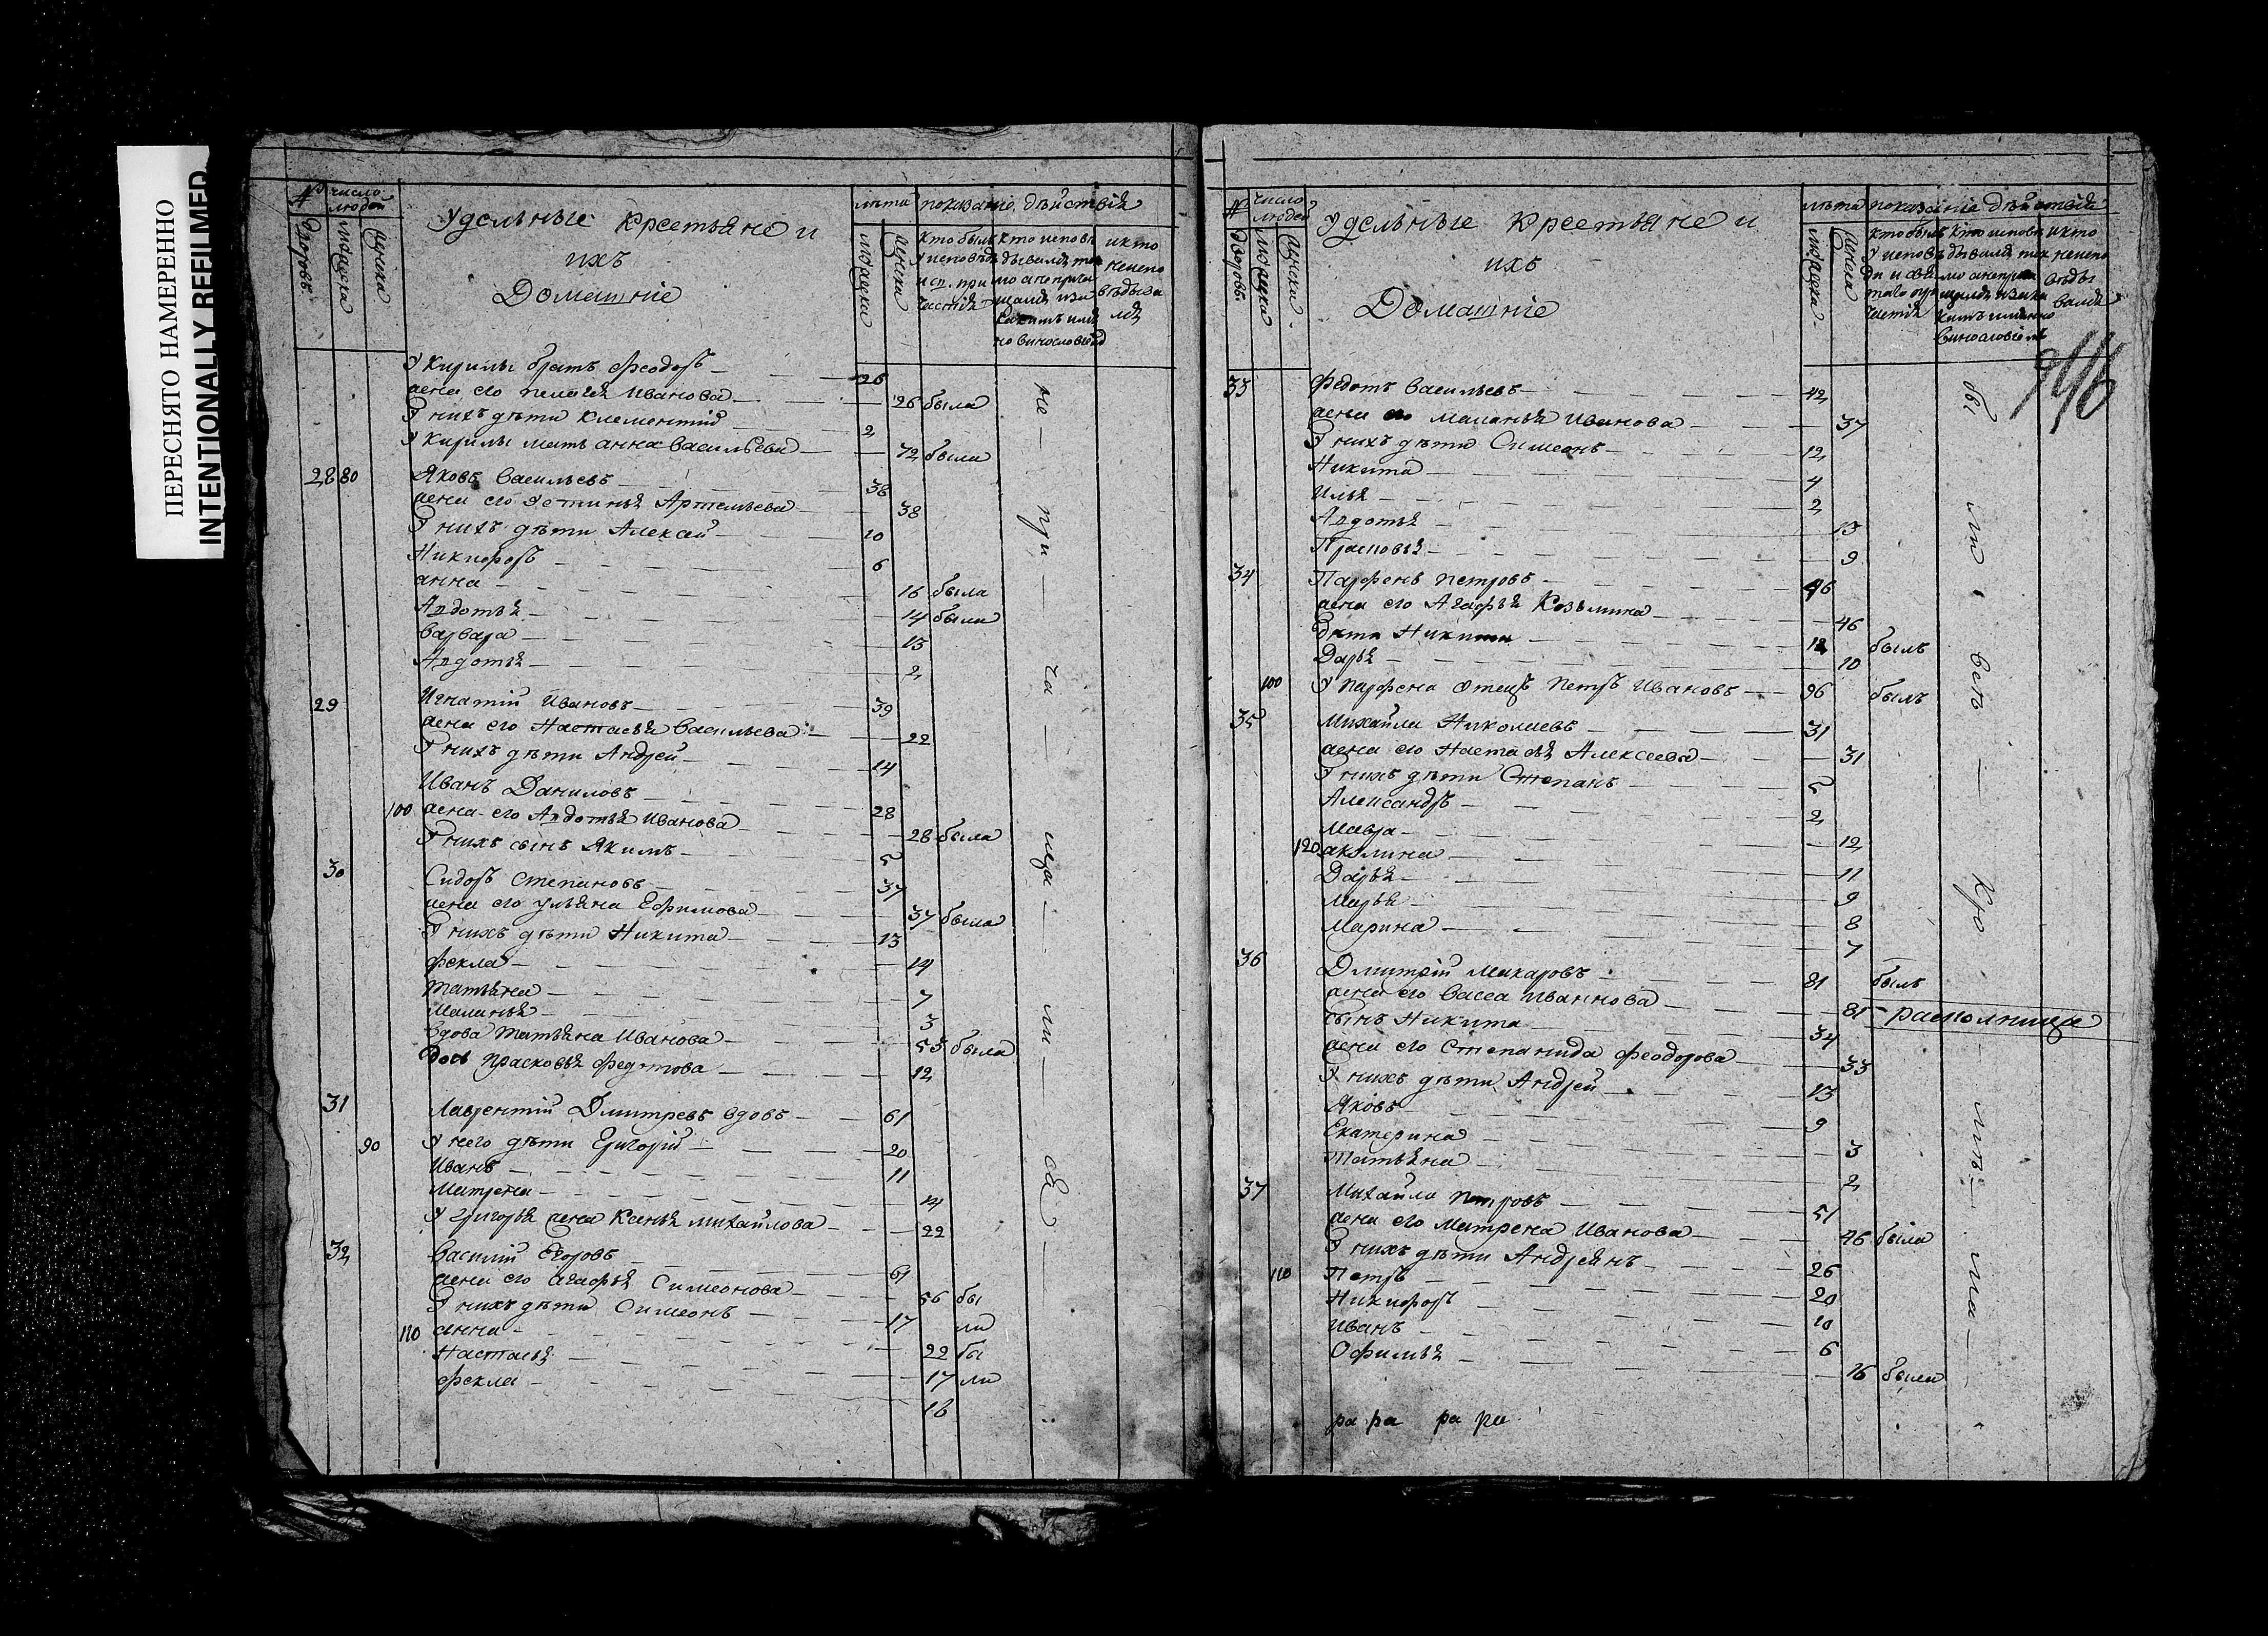 ПЕРЕСНЯТО НАМЕРЕННО
INTENTIONALLY REFILMED
№ число людей
Удельные крестьяне и
лѣта показаніе дѣйствія
ихъ
Домашніе
дворовъ мужеска женска
мужеска женска
У Кирилы братъ Феодоръ 26
жена его Пелагея Иванова 26 была
У нихъ дѣти Клементий 2
У Кирилы мать Анна Васильева 72 была
28 80 Яковъ Васильевъ 38
жена его Устинья Артемьева 38
У нихъ дѣти Алексей 10
Никифоръ 6
Анна 16 была
Авдотья 14 была
Варвара 13
Авдотья 2
29 Игнатий Ивановъ 39
жена его Настасья Васильева 22
У нихъ дѣти Андрей 14
Иванъ Даниловъ 28
100 жена его Авдотья Иванова 28 была
У нихъ сынъ Якимъ 5
30 Сидоръ Степановъ 37
жена его Ульяна Ефимова 37 была
У нихъ дѣти Никита 13
Фекла 14
Татьяна 7
Маланья 3
Вдова Татьяна Иванова 53 была
дочь Прасковья Федотова 12
31 Лаврентий Дмитревъ вдовъ 61
90 У него дѣти Григорий 20
Иванъ 11
Матрена 14
У Григорья жена Ксенья Михайлова 22
32 Василий Егоровъ 61
жена его Агафья Симеонова 56 бы
У нихъ дѣти Симеонъ 17 ли
110 Анна 22 бы
Настасья 17 ли
Фекла 16
не при ча ща ли ся
№ число людей
Удельные крестьяне и
лѣта показаніе дѣйствія
ихъ
Домашніе
дворовъ мужеска женска
мужеска женска
33 Федотъ Васильевъ 42
жена его Маланья Иванова 37
У нихъ дѣти Симеонъ 12
Никита 4
Илья 2
Авдотья 13
Прасковья 9
34 Парфенъ Петровъ 46
жена его Агафья Козьмина 46
дѣти Никита 12 былъ
Дарья 10
100 У Парфена отецъ Петръ Ивановъ 96 былъ
35 Михайла Николаевъ 31
жена его Настасья Алексеева 31
У нихъ дѣти Степанъ 5
Александръ 2
Мавра 12
120 Акулина 11
Дарья 9
Марья 8
Марина 7
36 Дмитрий Макаровъ 81 былъ
жена его Васса Иваннова 81 раскольница
сынъ Никита 34
жена его Степанида Феодорова 33
У нихъ дѣти Андрей 13
Яковъ 9
Екатерина 3
Татьяна 2
37 Михайла Петровъ 51
жена его Матрена Иванова 46 была
У нихъ дѣти Андреянъ 26
110 Петръ 20
Никифоръ 10
Иванъ 6
Офимья 16 была
ра ра ра ра